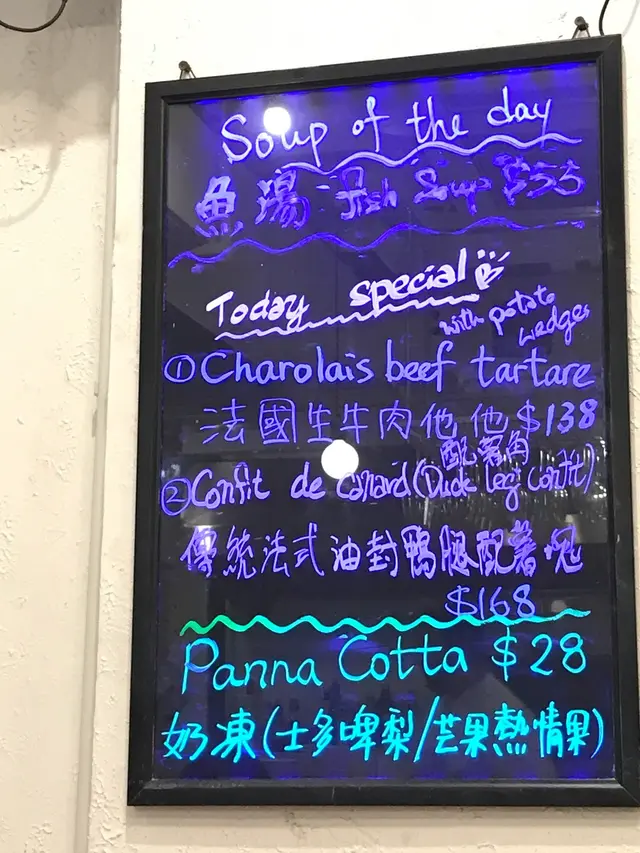 Soup of the day
魚湯 Fish Soup $55
Today special
with potato wedges
① Charolais beef tartare
法國生牛肉他他 $138
配薯角
② Confit de canard (Duck leg confit)
傳統法式油封鴨腿配薯塊
$168
Panna Cotta $28
奶凍(士多啤梨/芒果熱情果)